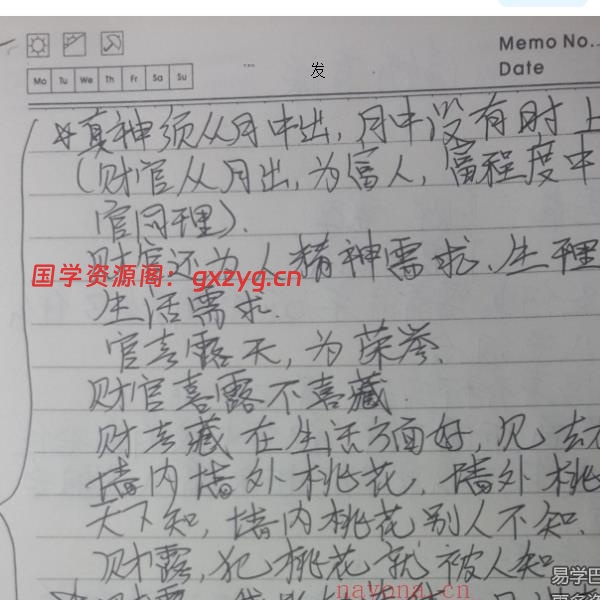 Memo No.
Date
Mo Tu We Th Fr Sa Su
发
真神须从月中出,月中没有时上
(财官从月出,为富人,富程度中
官同理).
财官还为人精神需求.生理
国学资源阁:gxzyg.cn
生活需求.
官喜露天,为荣誉.
财官喜露不喜藏
财喜藏在生活方面好,见去
墙内墙外桃花,墙外桃
天下知,墙内桃花别人不知.
财露,犯桃花就被人知
nayona.cn
易学巴